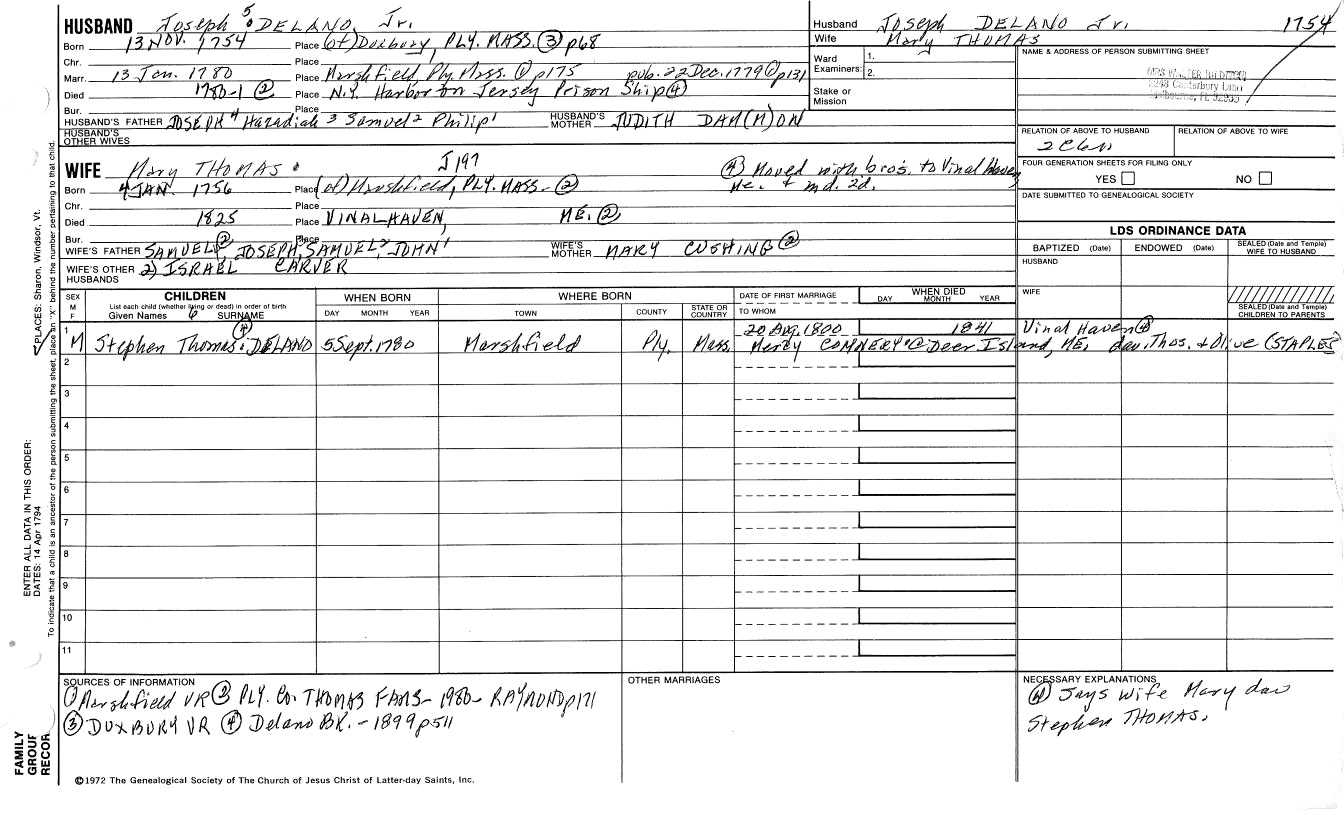 HUSBAND Joseph 5 DELANO, Jr.
Born 13 NOV. 1754 Place (of) Duxbury, PLY. MASS. ③ p68
Chr. Place
Marr. 13 Jan. 1780 Place Marshfield Ply. Mass. ① p175 pub. 22 Dec. 1779 ① p131
Died 1780-1 ② Place N.Y. Harbor on Jersey Prison Ship ④
Bur. Place
HUSBAND'S FATHER JOSEPH 4 Hazadiah 3 Samuel 2 Philip 1 HUSBAND'S MOTHER JUDITH DAM(M)ON
HUSBAND'S OTHER WIVES
Husband Joseph DELANO Jr. 1754
Wife Mary THOMAS
Ward Examiners: 1. 2.
Stake or Mission
NAME & ADDRESS OF PERSON SUBMITTING SHEET
MRS
Canterbury Lane
Melbourne, FL
RELATION OF ABOVE TO HUSBAND RELATION OF ABOVE TO WIFE
FOUR GENERATION SHEETS FOR FILING ONLY
YES NO
DATE SUBMITTED TO GENEALOGICAL SOCIETY
WIFE Mary THOMAS J197
④ Moved with bro's. to Vinal Haven
Me. + md. 2d.
Born 4 JAN. 1756 Place (of) Marshfield, PLY. MASS. ②
Chr. Place
Died 1825 Place VINALHAVEN, ME. ②
Bur. Place
WIFE'S FATHER SAMUEL ②, JOSEPH 3, SAMUEL 2, JOHN 1 WIFE'S MOTHER MARY CUSHING ②
WIFE'S OTHER HUSBANDS 2) ISRAEL CARVER
LDS ORDINANCE DATA
BAPTIZED (Date) ENDOWED (Date) SEALED (Date and Temple) WIFE TO HUSBAND
HUSBAND
WIFE
SEALED (Date and Temple) CHILDREN TO PARENTS
SEX M F
CHILDREN
List each child (whether living or dead) in order of birth
Given Names 6 SURNAME
WHEN BORN
DAY MONTH YEAR
WHERE BORN
TOWN COUNTY STATE OR COUNTRY
DATE OF FIRST MARRIAGE
TO WHOM
WHEN DIED
DAY MONTH YEAR
1 20 Aug. 1800 1841 Vinal Haven ④
M Stephen Thomas ④ DELANO 5 Sept. 1780 Marshfield Ply. Mass. Mercy CONNERY @ Deer Island, ME. dau. Thos. + Olive (STAPLES
2
3
4
5
6
7
8
9
10
11
SOURCES OF INFORMATION
① Marshfield VR ② PLY. Co. THOMAS FAMS - 1980 - RAYMOND p171
③ DUXBURY VR ④ Delano BK. - 1899 p511
OTHER MARRIAGES
NECESSARY EXPLANATIONS
④ Says wife Mary dau
Stephen THOMAS.
©1972 The Genealogical Society of The Church of Jesus Christ of Latter-day Saints, Inc.
FAMILY GROUP RECOR
ENTER ALL DATA IN THIS ORDER:
DATES: 14 Apr 1794
PLACES: Sharon, Windsor, Vt.
To indicate that a child is an ancestor of the person submitting the sheet, place an "X" behind the number pertaining to that child.